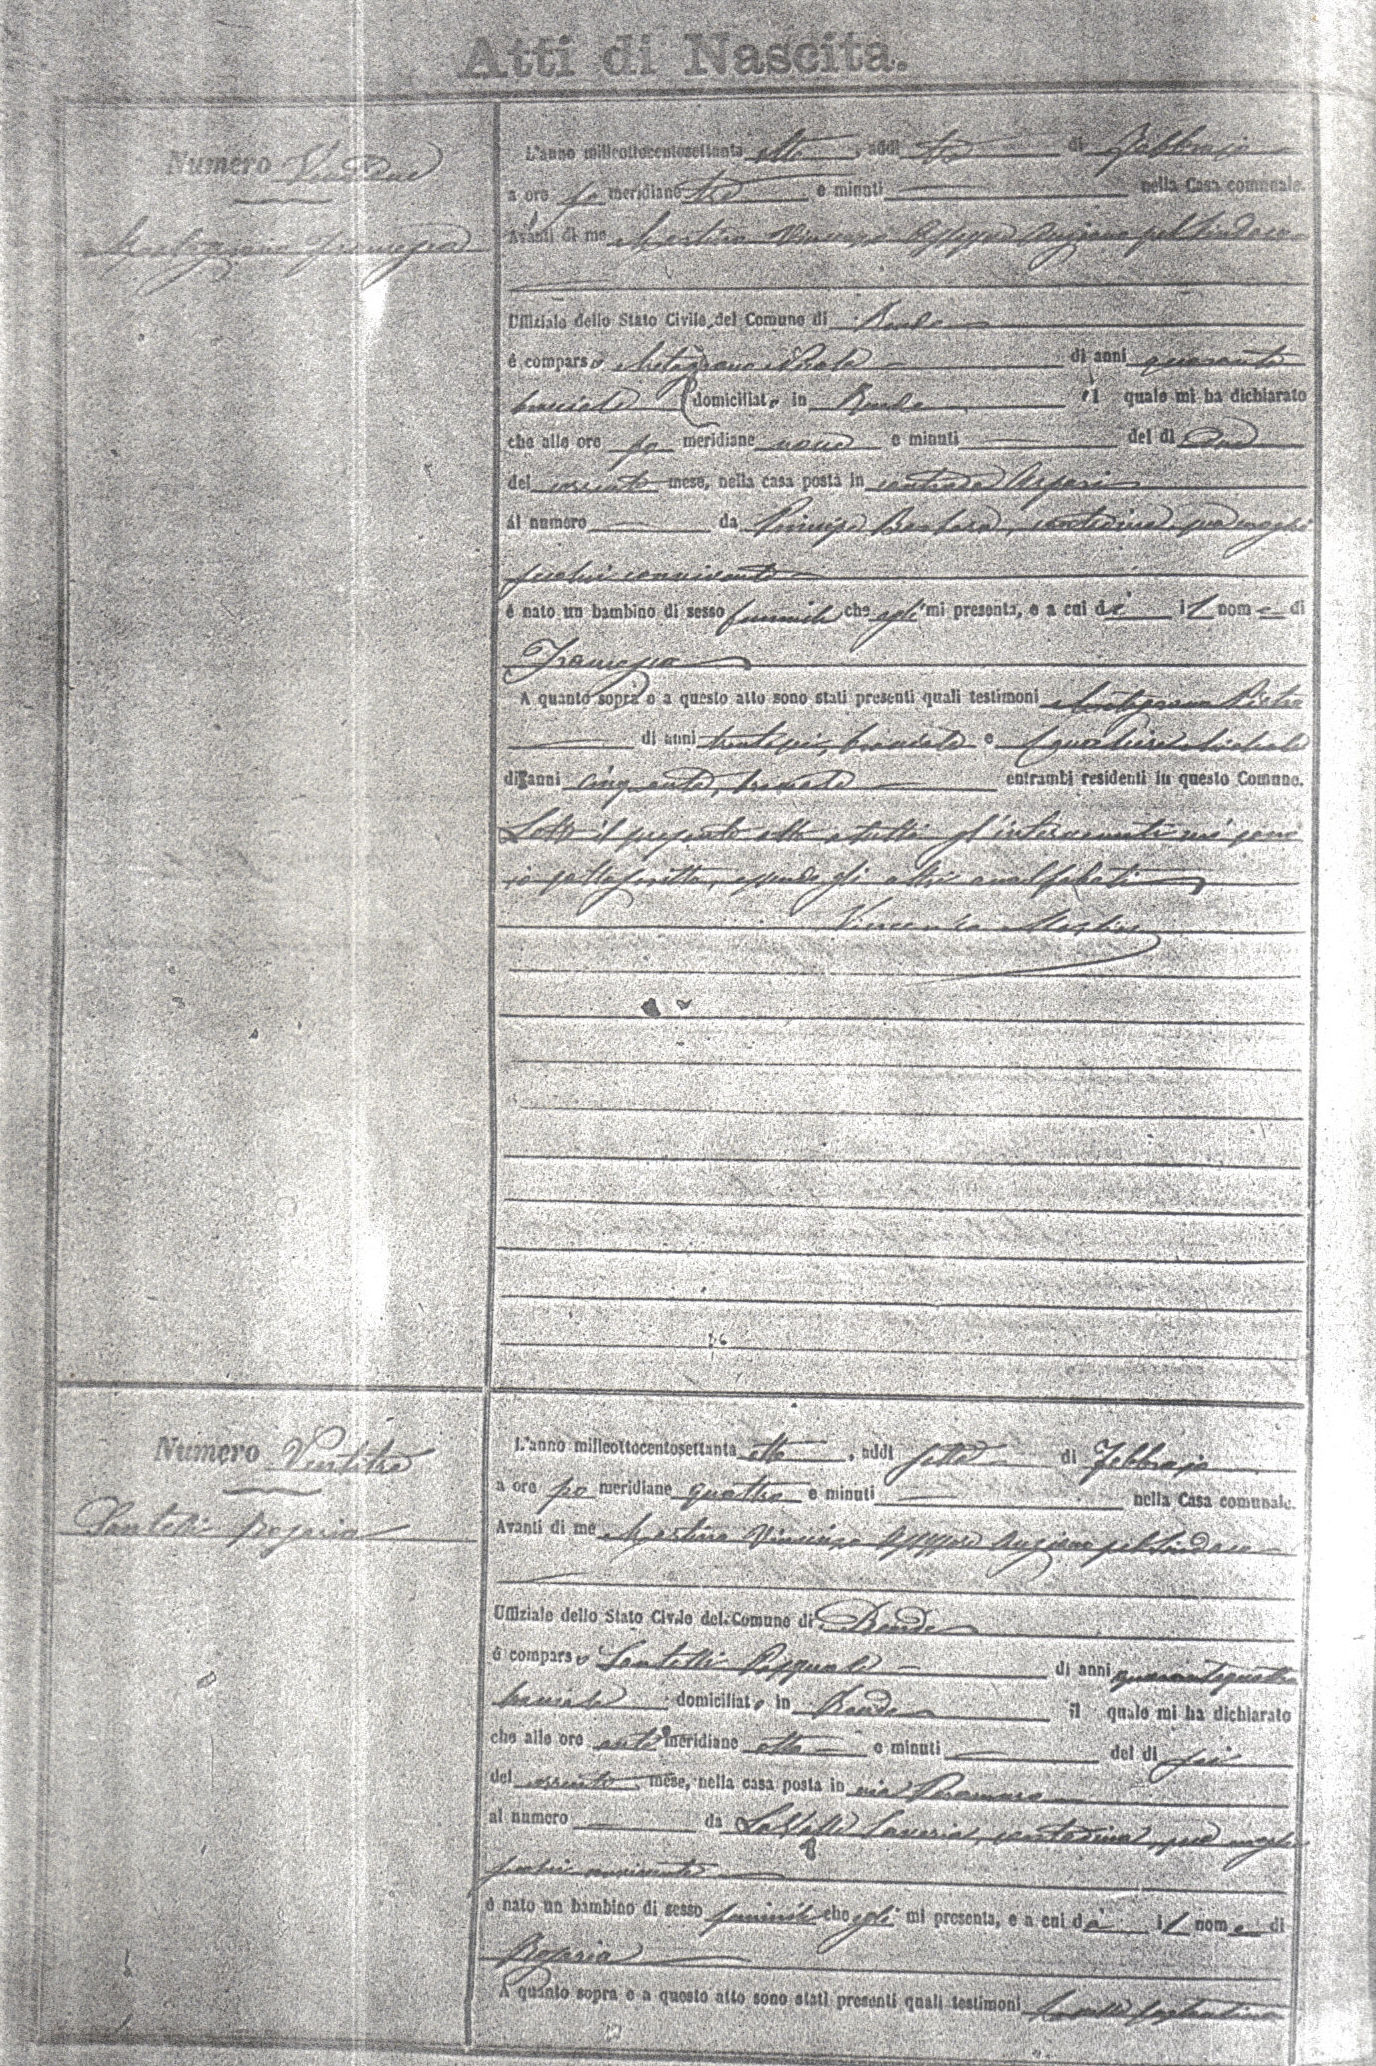 Atti di Nascita.
Numero Ventidue
Francesca
L'anno millecottocentosettanta otto, addi tre di Febbraio
a ore po meridiane tre e minuti nella Casa comunale.
Avanti di me Vincenzo Assessore Anziano pel Sindaco
Uffiziale dello Stato Civile del Comune di Rende
è comparso Nicola di anni quaranta
bracciale domiciliato in Rende il quale mi ha dichiarato
che alle ore po meridiane nove e minuti del di due
del corrente mese, nella casa posta in contrada
al numero da Principe Barbara, contadina, sua moglie
seco lui convivente
è nato un bambino di sesso feminile che egli mi presenta, e a cui dà il nome di
Francesca
A quanto sopra e a questo atto sono stati presenti quali testimoni Pietro
di anni trentasei, bracciale e Michele
di anni cinquanta, bracciale entrambi residenti in questo Comune.
Letto il presente atto a tutti gl'intervenuti mi sono
io sottoscritto, essendo gli altri analfabeti
Vincenzo
Numero Ventitre
Santelli Rosaria
L'anno millecottocentosettanta otto, addi sette di Febbraio
a ore po meridiane quattro e minuti nella Casa comunale.
Avanti di me Vincenzo Assessore Anziano pel Sindaco
Uffiziale dello Stato Civile del Comune di Rende
è comparso Santelli Pasquale di anni quarantaquattro
bracciale domiciliato in Rende il quale mi ha dichiarato
che alle ore anti meridiane otto e minuti del di sei
del corrente mese, nella casa posta in via
al numero da Saveria, contadina, sua moglie
seco lui convivente
è nato un bambino di sesso feminile che egli mi presenta, e a cui dà il nome di
Rosaria
A quanto sopra e a questo atto sono stati presenti quali testimoni